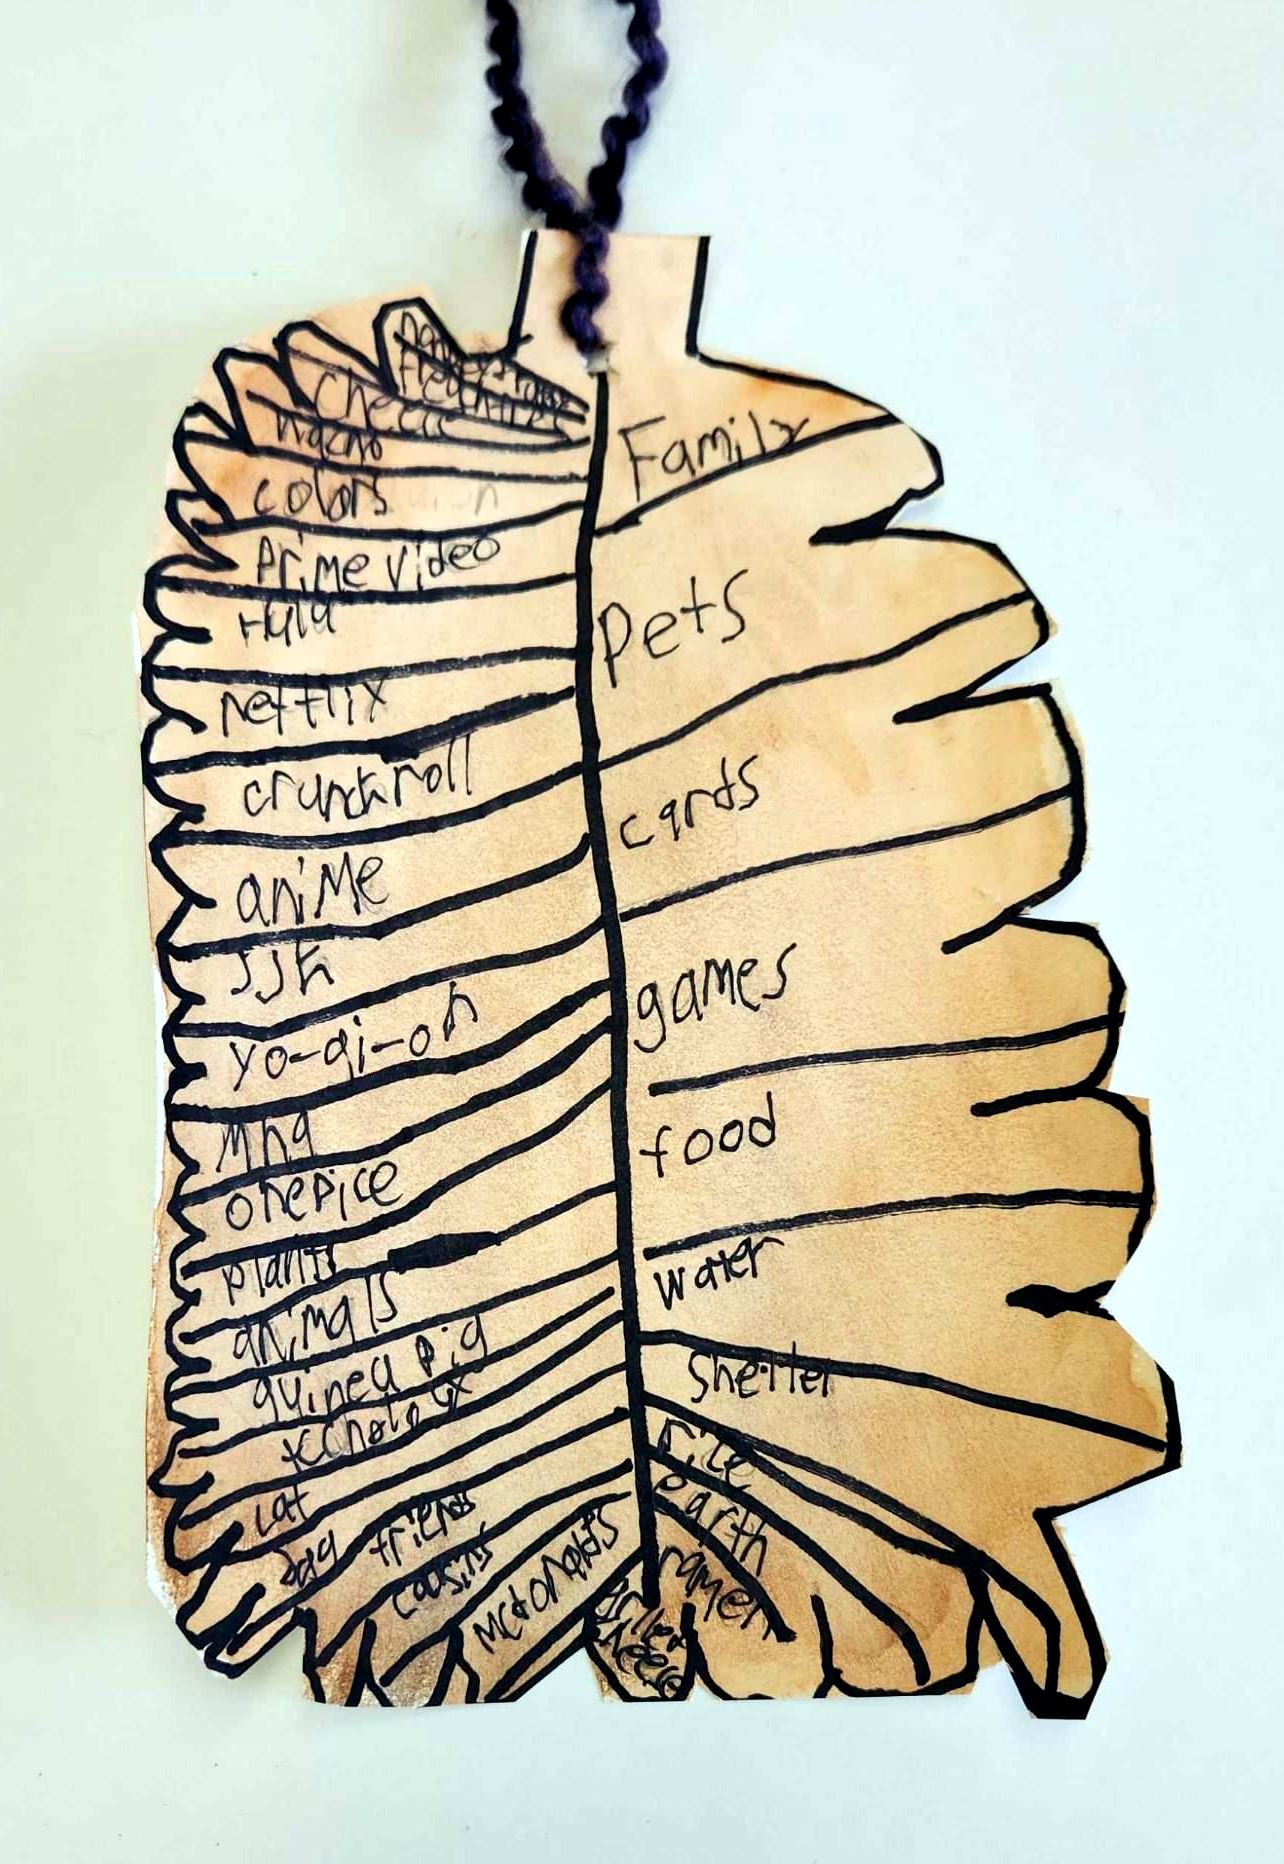 cheese
nacho
colors
Prime video
Hulu
netflix
crunchroll
aniMe
JJK
yo-gi-oh
Mha
onepice
plants
animals
guinea pig
cat
dog
friends
cousins
McdonaldS
Family
Pets
cards
gaMes
food
water
Shelter
rice
earth
ramen
grilled
cheese